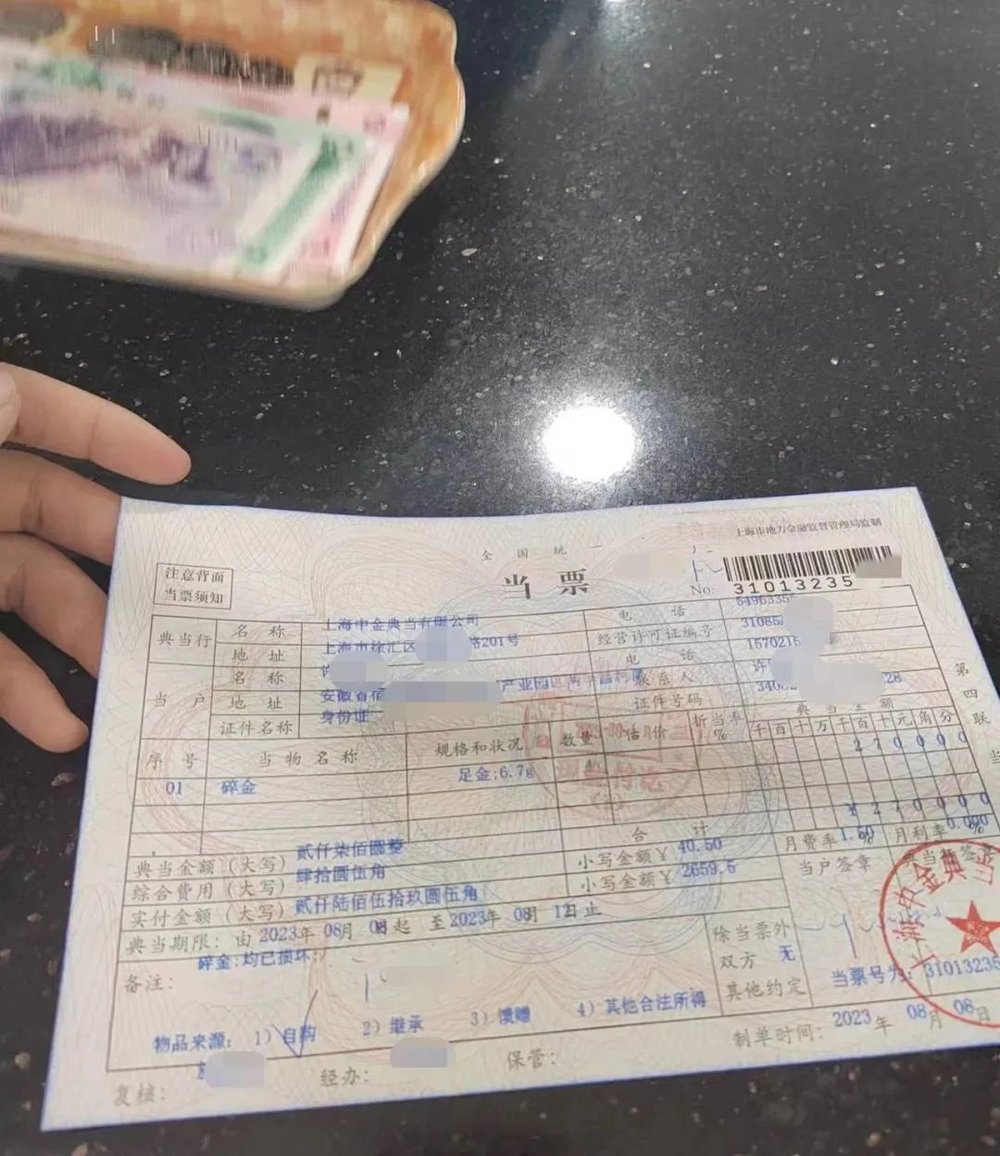 上海市地方金融监督管理局监制
全国统一
当票
注意背面
当票须知
No. 31013235
典当行 名称 上海中金典当有限公司 电话
地址 上海市徐汇区 路201号 经营许可证编号 31085
当户 名称 许 电话 1570215
地址 安徽省宿 产业园区 联系人 许
证件名称 身份证 证件号码 340 28
序号 当物名称 规格和状况 数量 估价 折当率% 典当金额
千百十万千百十元角分
01 碎金 足金:6.7g 270000
合计 ¥270000
典当金额(大写) 贰仟柒佰圆整 小写金额¥ 40.50 月费率1.50 月利率0.000%
综合费用(大写) 肆拾圆伍角 小写金额¥ 2659.5 当户签章
实付金额(大写) 贰仟陆佰伍拾玖圆伍角
典当期限:由2023年08月08日起 至2023年08月12日止
除当票外
双方 无
其他约定
备注: 碎金:均已损坏;
当票号为:31013235
物品来源: 1)自购 2)继承 3)馈赠 4)其他合法所得
制单时间: 2023年08月08日
复核: 经办: 保管:
第四联
上海中金典当